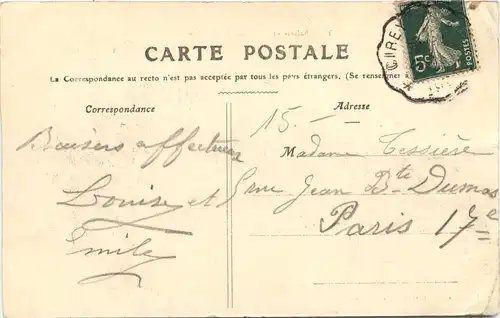 CARTE POSTALE
La Correspondance au recto n'est pas acceptée par tous les pays étrangers. (Se renseigner
Correspondance
Baisers affectueux
Louise et
Emile
Adresse
15. —
Madame Tessière
5 rue Jean Bte Dumas
Paris 17e
5c
POSTES